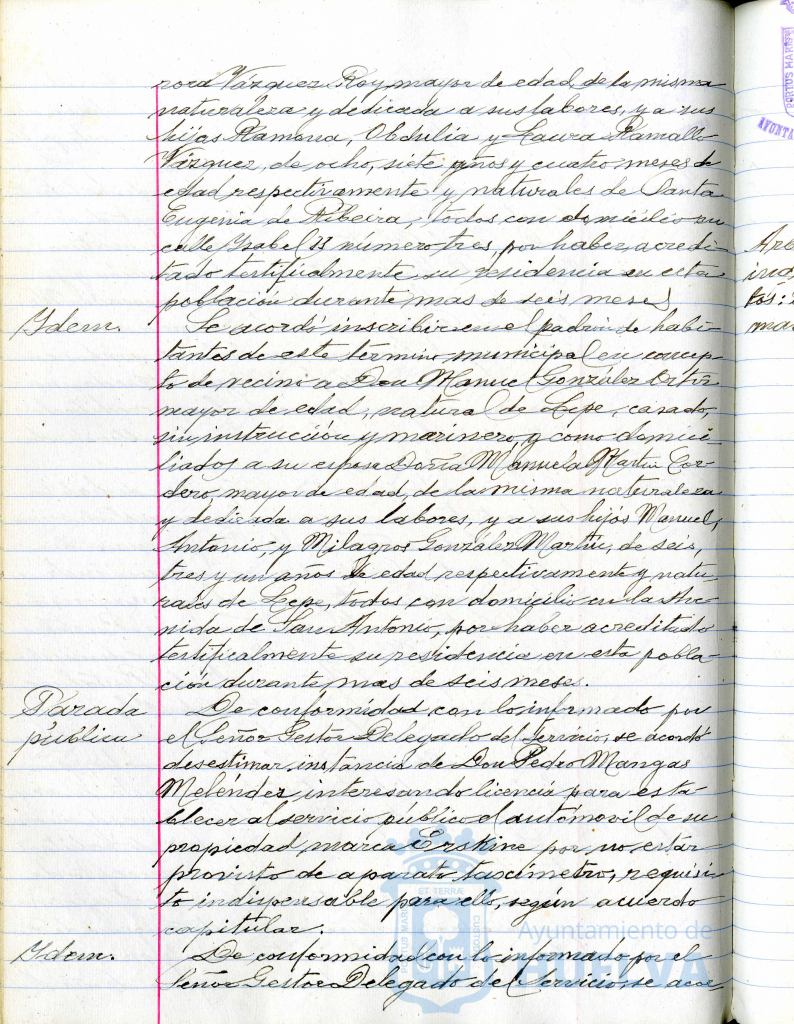 rora Vázquez Rey, mayor de edad, de la misma
naturaleza y dedicada a sus labores, y a sus
hijas Ramona, Obdulia y Laura Ramallo
Vázquez, de ocho, siete años y cuatro meses de
edad respectivamente y naturales de Santa
Eugenia de Ribeira, todos con domicilio en
calle Ysabel II número tres, por haber acredi-
tado testificalmente su residencia en esta
población durante mas de seis meses
Ydem.
Se acordó inscribir en el padrón de habi-
tantes de este termino municipal en concep-
to de vecino a Don Manuel González
mayor de edad, natural de Lepe, casado,
sin instrucción y marinero, y como domici-
liados a su esposa Doña Manuela Martin Cor-
dero, mayor de edad, de la misma naturaleza
y dedicada a sus labores, y a sus hijos Manuel,
Antonio, y Milagros González Martin, de seis,
tres y un años de edad respectivamente y natu-
rales de Lepe, todos con domicilio en la Ave-
nida de San Antonio, por haber acreditado
testificalmente su residencia en esta pobla-
ción durante mas de seis meses.
Parada
pública
De conformidad con lo informado por
el Señor Gestor Delegado del Servicio, se acordó
desestimar instancia de Don Pedro Mangas
Meléndez interesando licencia para esta-
blecer al servicio público el automóvil de su
propiedad marca Erskine por no estar
provisto de aparato taxímetro, requisi-
to indispensable para ello, según acuerdo
capitular.
Ydem.
De conformidad con lo informado por el
Señor Gestor Delegado del Servicio, se acor
Ayuntamiento de
HUELVA
PORTUS MARIS
ET TERRAE
CUSTODIA
PORTUS MARIS
AYUNTA